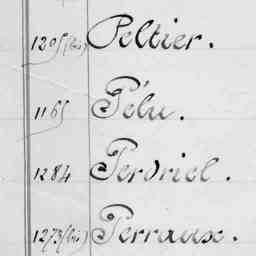 1205(bis) Peltier.
1165 Pélu.
1284 Perdriel.
1273(bis) Perraux.